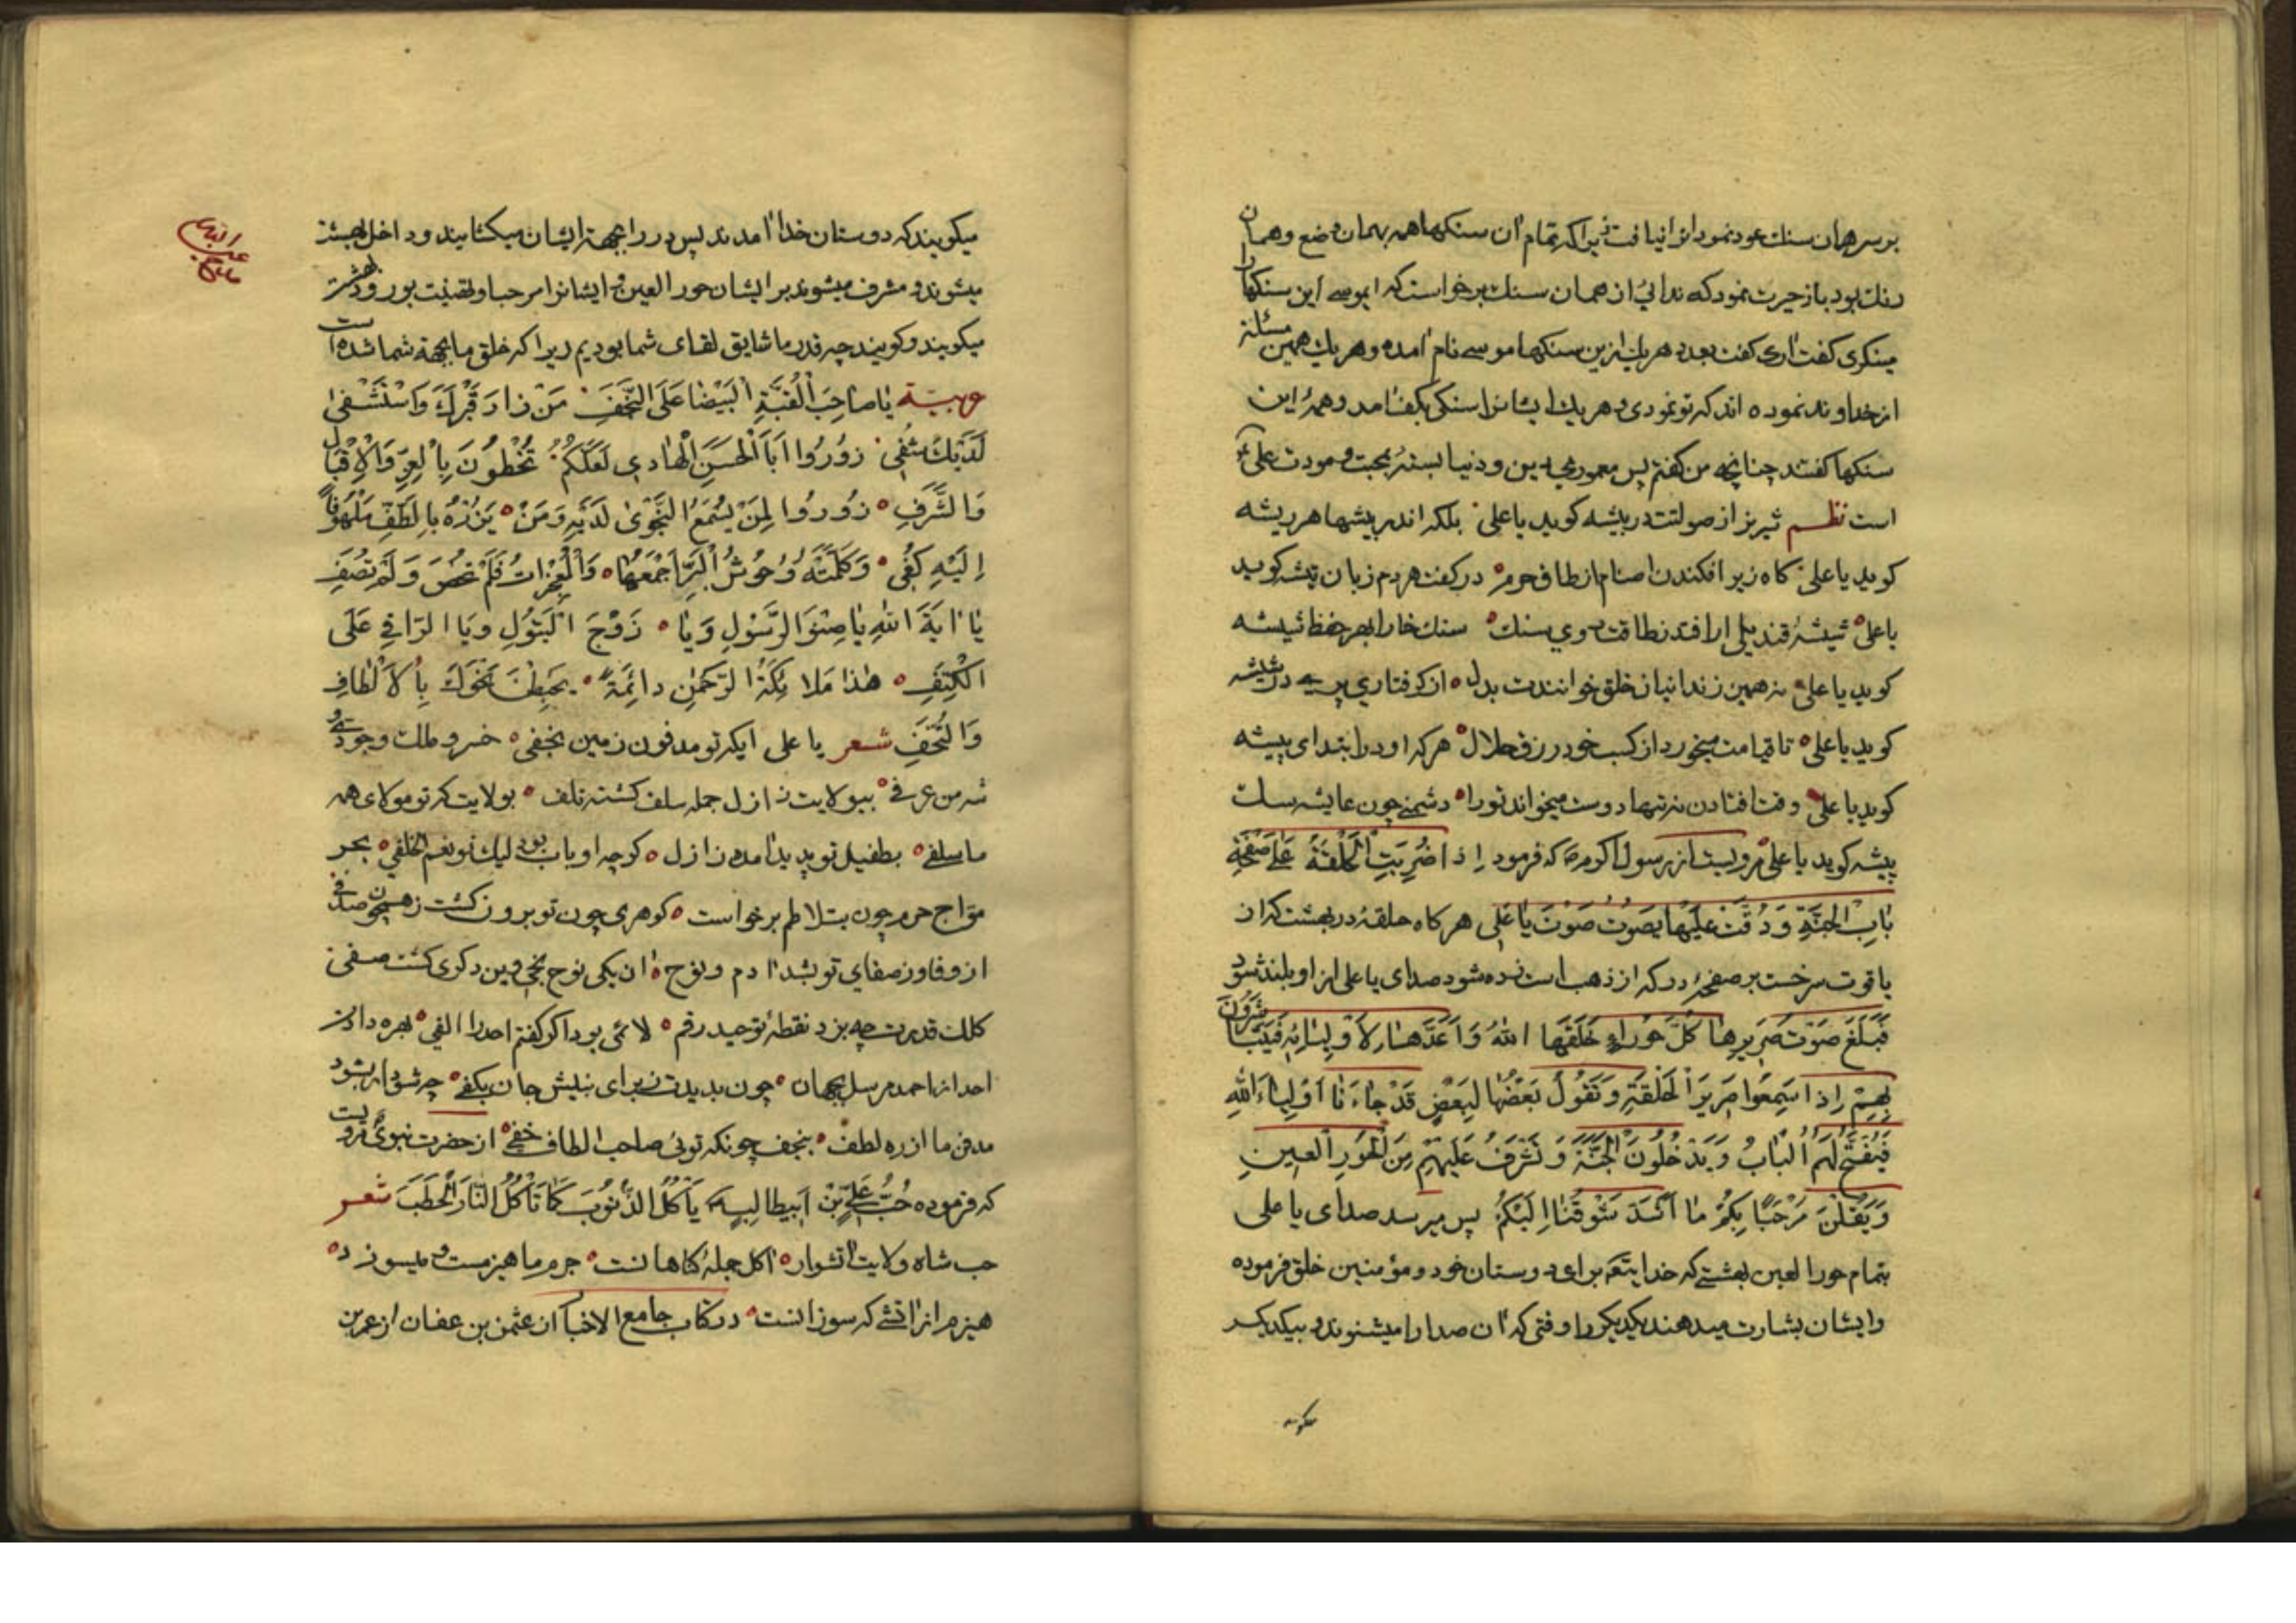 بر سر همان سنك عود نمود انرا نیافت زیراكه تمام آن سنكها همه بهمان وضع و همان
رنك بود باز حیرت نمود كه ندائی از همان سنك برخواست كه ایموسی این سنكها را
مینكری كفت آری كفت بعدد هریك ازین سنكها موسی نام آمده و هریك همین مسئلة
از خداوند نموده اند كه تو نمودی و هریك ایشانرا سنكی بكف آمد و همهٔ این
سنكها كفتند چنانچه من كفتم پس معموری دین و دنیا بستهٔ بمحبت و مودت علی
است نظم شیر نر از صولتت در بیشه كوید یا علی بلكه اندر بیشها هر ریشه
كوید یا علی كاه زیر افكندن اصنام از طاف حرم در كفت هر دم زبان تیشه كوید
یا علی شیشهٔ قندیلی ار افتد ز طاقت روی سنك سنك خارا بهر حفظ شیشه
كوید یا علی نه همین زندانیان خلق خوانندت بدل از كرفتاری پری در شیشه
كوید یا علی تا قیامت میخورد از كسب خود رزق حلال هركه او در ابتدای پیشه
كوید یا علی وقت افتادن نه تنها دوست میخواند تورا دشمنی چون عایشه سلت
پیشه كوید یا علی مرویست از رسول اكرم كه فرمود اِذا ضُرِبَتِ الْحَلْقَةُ عَلی صَفْحَةِ
بٰابِ الْجَنَّةِ وَ دُقَّتْ عَلَیْهٰا یَصُوتُ صَوْتَ یٰا عَلی هركاه حلقهٔ در بهشت كه از
یاقوت سرخست بر صفحهٔ در كه از ذهب است زده شود صدای یا علی از او بلند شود
فَبَلَغَ صَوْتُ صَرِیرِهٰا كُلَّ حَوْراءٍ خَلَقَهَا اللّٰهُ وَ اَعَدَّهٰا لِاَوْلِیٰائِهِ فَیَتَبٰاشَرُونَ
بِهِمْ اِذا سَمِعُوا صَرِیرَ الْحَلْقَةِ وَ تَقُولُ بَعْضُهٰا لِبَعْضٍ قَدْ جٰاءَنٰا اَوْلِیٰاءُ اللّٰهِ
فَیُفْتَحُ لَهُمُ الْبٰابُ وَ یَدْخُلُونَ الْجَنَّةَ وَ تَشَرَّفُ عَلَیْهِمْ مِنَ الْحُورِ الْعینِ
وَ یَقُلْنَ مَرْحَبًا بِكُمْ مٰا اَشَدَّ شَوْقَنٰا اِلَیْكُمْ پس میرسد صدای یا علی
بتمام حور العین بهشتی كه خدایتعه برای دوستان خود و مؤمنین خلق فرموده
و ایشان بشارت میدهند یكدیكر را وقتی كه آن صدا را میشنوند و بیكدیكر
میكویند كه دوستان خدا آمدند پس در را بجهة ایشان میكشایند و داخل بهشت
میشوند و مشرف میشوند بر ایشان حور العین و ایشانرا مرحبا و تهنیت بورود بهشت
میكویند و كویند چه قدر ما شایق لقای شما بودیم زیرا كه خلق ما بجهة شما شده است
عربیّة یٰا صٰاحِبَ الْقُبَّةِ الْبَیْضٰا عَلَی النَّجَفِ مَنْ زارَ قَبْرَكَ وَ اسْتَشْفیٰ
لَدَیْكَ شُفِی زُورُوا اَبَا الْحَسَنِ الْهٰادی لَعَلَّكُمْ تُحْظَوْنَ بِالْعِزِّ وَ الْاِقْبٰالِ
وَ الشَّرَفِ زُورُوا لِمَنْ یُسْمَعُ النَّجْویٰ لَدَیْهِ وَ مَنْ یَزُرْهُ بِاللُّطْفِ مَلْهُوفًا
اِلَیْهِ كُفِی وَ كَلَّمَتْهُ وُحُوشُ الْبَرِّ اَجْمَعُهٰا وَ الْمُعْجِزاتُ فَلَمْ تُحْصَ وَ لَمْ تُصَفِ
یٰا آیَةَ اللّٰهِ یٰا صِنْوَ الرَّسُولِ وَ یٰا زَوْجَ الْبَتُولِ وَ یَا الرّاقی عَلَی
الْكَتِفِ هٰذا مَلائِكَةُ الرَّحْمٰنِ دائِمَةً یَهْبِطْنَ نَحْوَكَ بِالْاَلْطٰافِ
وَ التُّحَفِ شعر یا علی ایكه تو مدفون زمین نجفی خسرو ملك وجودی و
شه من عرفی بیولایت ز ازل جمله سلف كشته تلف بولایت كه تو مولای همه
ما سلفی بطفیل تو پدید آمده ز ازل كرچه او باب بود لیك تو نعم الخلفی بحر
مواج حرم چون بتلاطم برخواست كوهری چون تو برون كشت ز همچون صدفی
از وفا وز صفای تو بشد آدم و نوح آن یكی نوح نجی وین دكری كشت صفی
كلك قدرت چه بزد نقطهٔ توحید رقم لائی بود اكر كفتم احد را الفی بهره دادت
احد از احمد مرسل بجهان چون بدیدت ز برای نبیش جان بكفی چه شود ار بشود
مدفن ما از ره لطف بنجف چونكه توئی صاحب الطاف خفی از حضرت نبوی مرویست
كه فرموده حُبُّ عَلِیِّ بْنِ اَبیطالِبٍ یَأْكُلُ الذُّنُوبَ كَمٰا تَأْكُلُ النّارُ الْحَطَبَ شعر
حب شاه ولایت آتشوار آكل جملهٔ كناهانست جرم ما هیزمست و میسوزد
هیزم از آتشی كه سوزانست در كتاب جامع الاخبار آن عثمن بن عفان از عمر بن